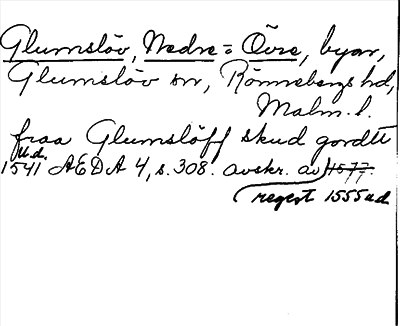 Glumslöv, Nedre = Övre, byar,
Glumslöv sn, Rönnebergs hd,
Malm. l.
fraa Glumslöff skud gordtt
u.d.
1541 AEDA 4, s. 308. avskr. av 1577.
regest 1555 ud